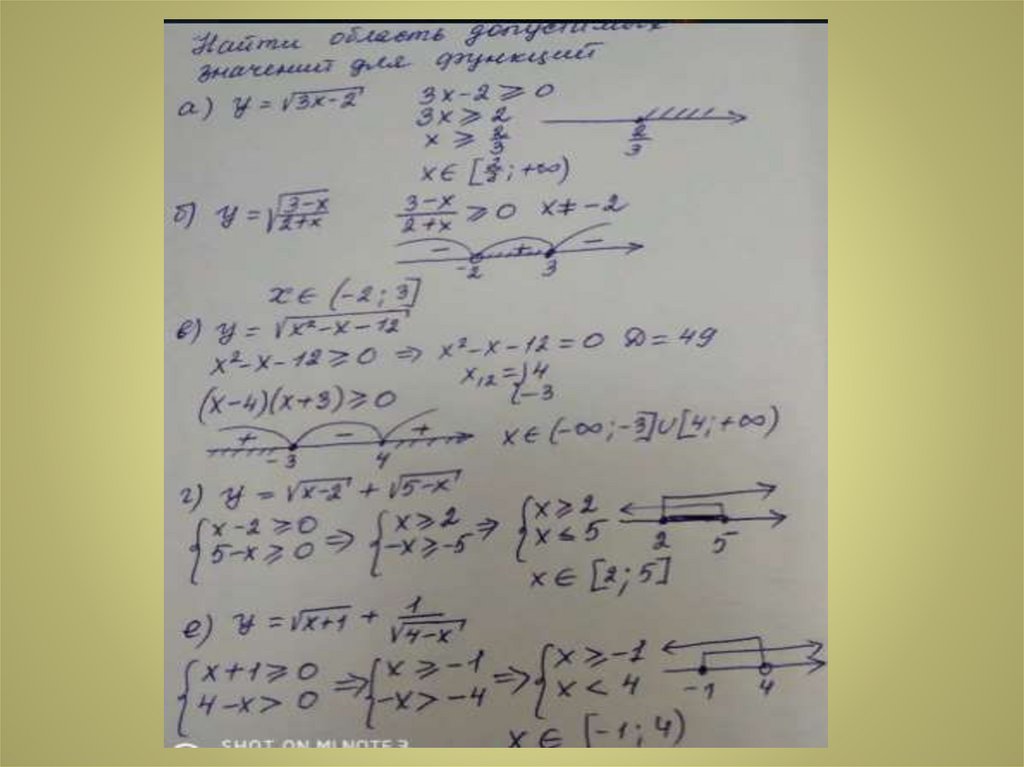 Найти область допустимых
значений для функций
а) y = √3x-2 3x-2 ≥ 0
3x ≥ 2
x ≥ 2/3
2/3
x ∈ [2/3; +∞)
б) y = √(3-x)/(2+x) (3-x)/(2+x) ≥ 0 x ≠ -2
- + -
-2 3
x ∈ (-2; 3]
в) y = √x²-x-12
x²-x-12 ≥ 0 ⇒ x²-x-12 = 0 D = 49
x₁,₂ = { 4
-3
(x-4)(x+3) ≥ 0
+ - +
-3 4
x ∈ (-∞; -3] ∪ [4; +∞)
г) y = √x-2 + √5-x
{ x-2 ≥ 0 ⇒ { x ≥ 2 ⇒ { x ≥ 2
5-x ≥ 0 -x ≥ -5 x ≤ 5
2 5
x ∈ [2; 5]
е) y = √x+1 + 1/√4-x
{ x+1 ≥ 0 ⇒ { x ≥ -1 ⇒ { x ≥ -1
4-x > 0 -x > -4 x < 4
-1 4
x ∈ [-1; 4)
SHOT ON MI NOTE 3